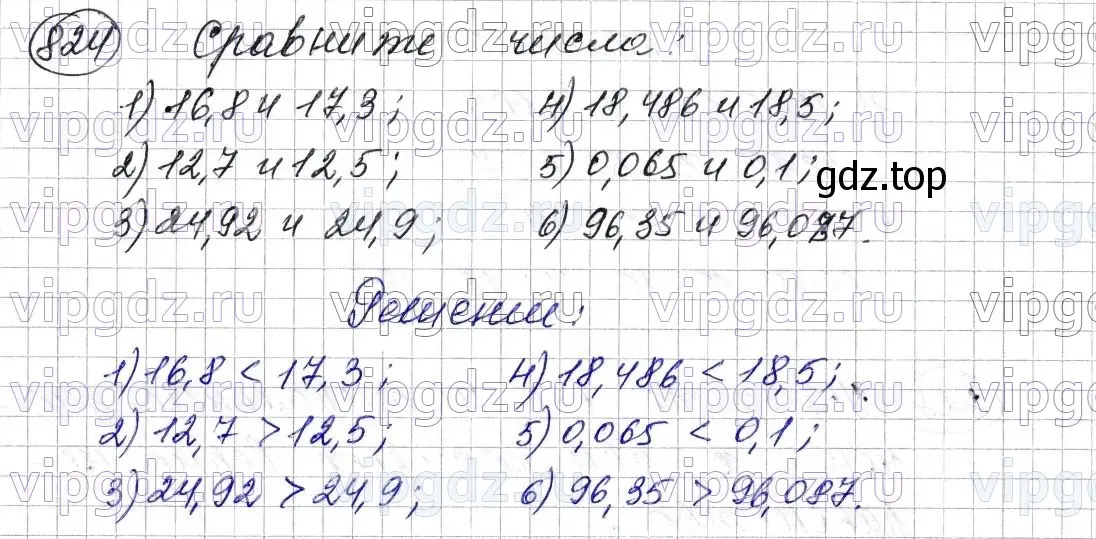 824 Сравните числа:
1) 16,8 и 17,3; 4) 18,486 и 18,5;
2) 12,7 и 12,5; 5) 0,065 и 0,1;
3) 24,92 и 24,9; 6) 96,35 и 96,087.
gdz.top
Решение:
1) 16,8 < 17,3; 4) 18,486 < 18,5;
2) 12,7 > 12,5; 5) 0,065 < 0,1;
3) 24,92 > 24,9; 6) 96,35 > 96,087.
vipgdz.ru